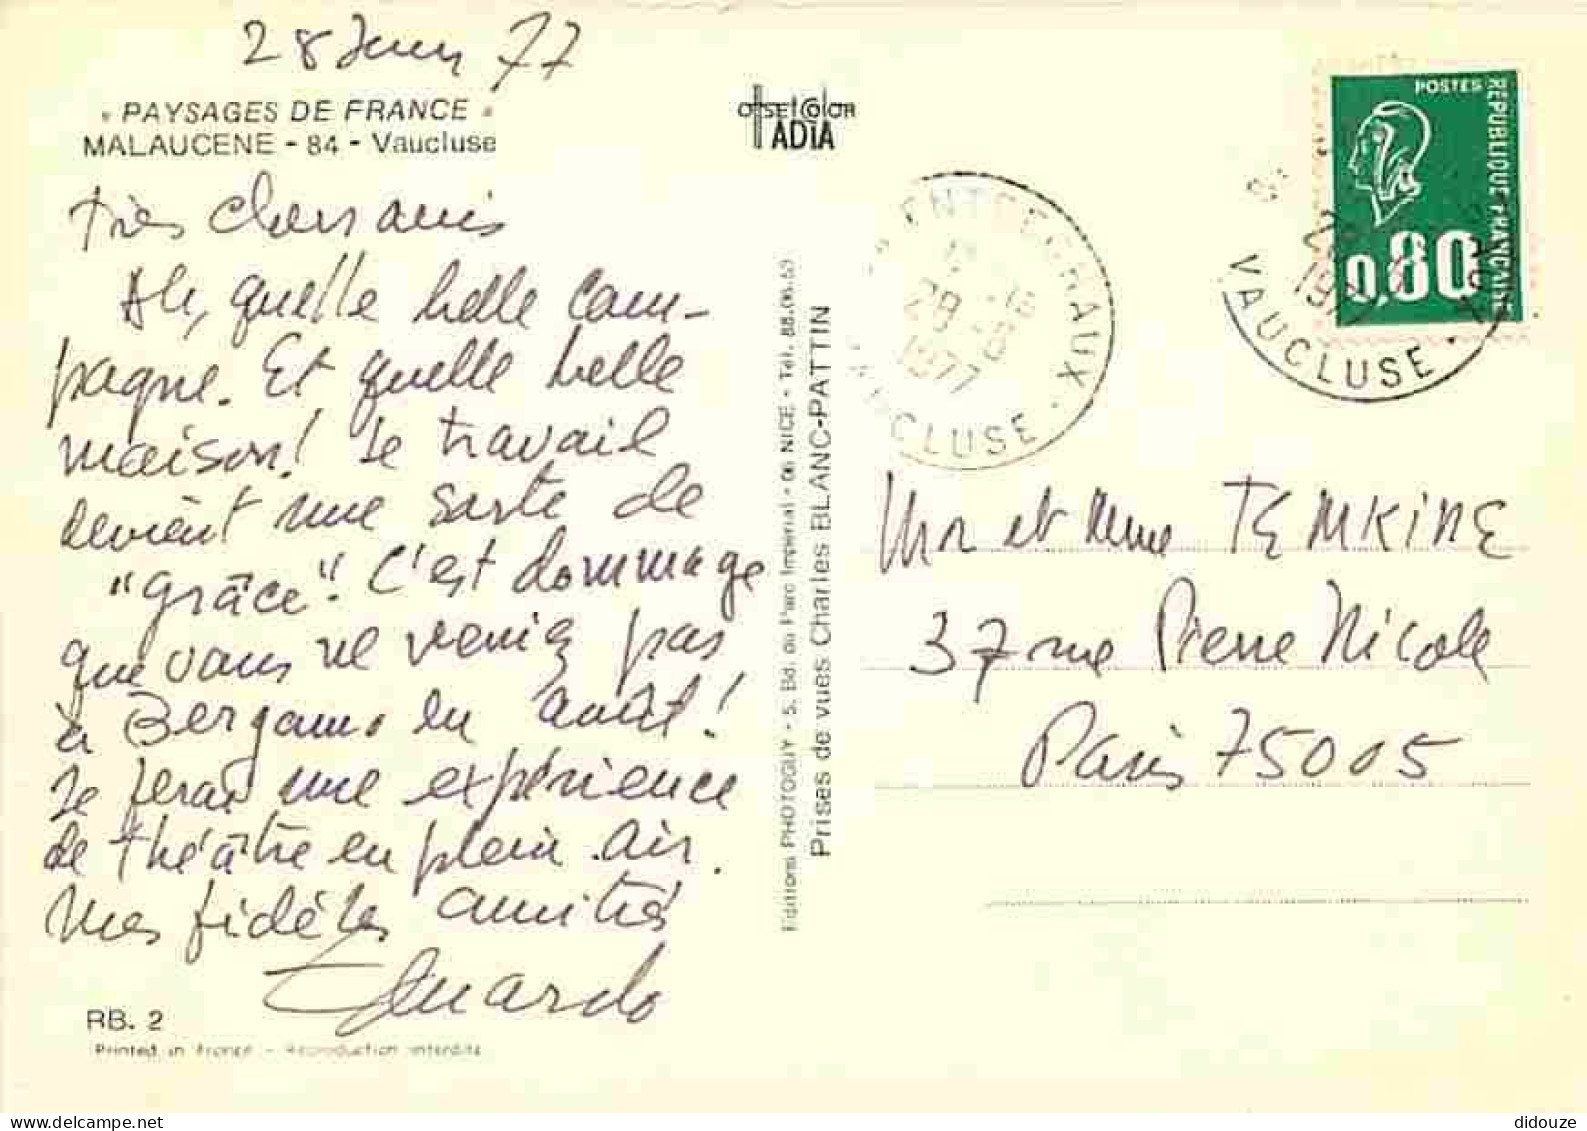 28 Juin 77
"PAYSAGES DE FRANCE"
MALAUCENE - 84 - Vaucluse
très chers amis
Ah, quelle belle cam-
pagne. Et quelle belle
maison! Le travail
devient une sorte de
"grâce". C'est dommage
que vous ne veniez pas
à Bergamo en août!
Je ferai une expérience
de théâtre en plein air.
Mes fidèles amitiés
Eduardo
RB. 2
Printed in France - Reproduction interdite
OffsetColor
ADIA
Editions PHOTOGUY - 5, Bd. du Parc Impérial - 06 NICE - Tél. 88.06.63
Prises de vues Charles BLANC-PATTIN
ENTRECHAUX
28 -6
1977
VAUCLUSE
POSTES
REPUBLIQUE FRANCAISE
0,80
VAUCLUSE
Mr et Mme TEMKINE
37 rue Pierre Nicole
Paris 75005
didouze